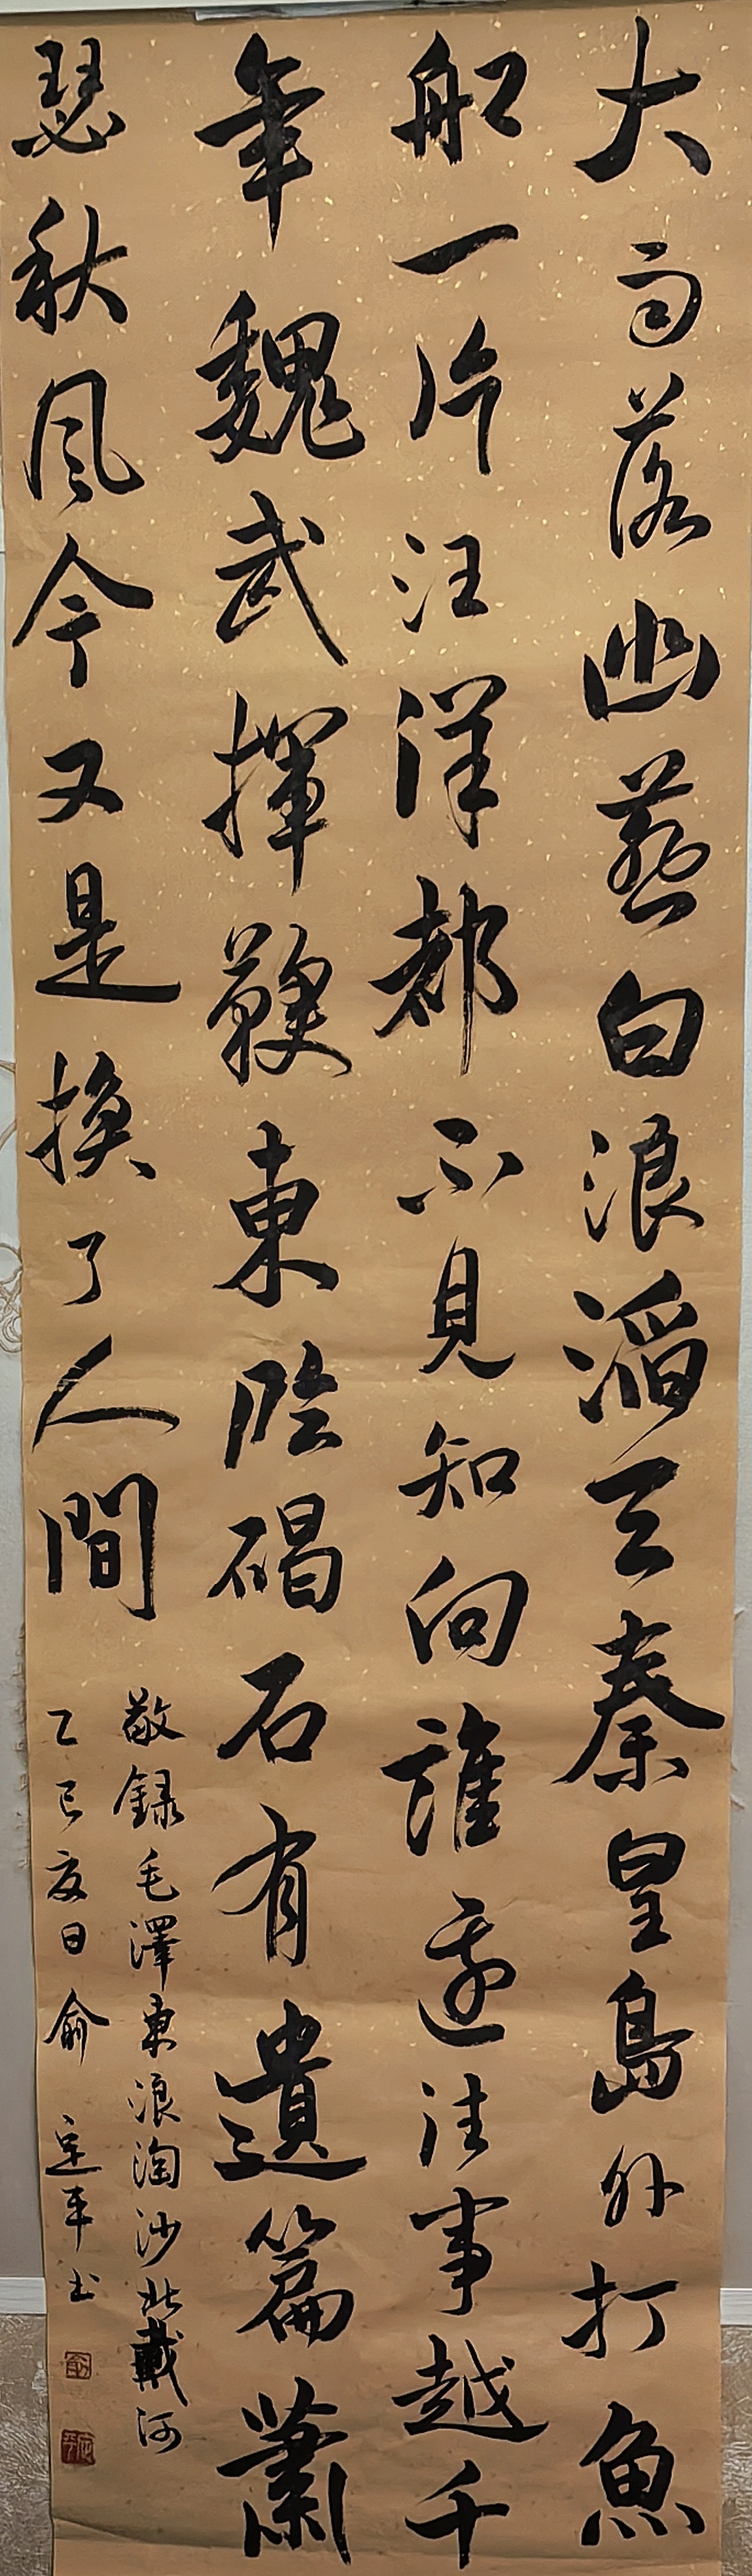 大雨落幽燕白浪滔天秦皇島外打魚
船一片汪洋都不見知向誰邊往事越千
年魏武揮鞭東臨碣石有遺篇蕭
瑟秋風今又是換了人間
敬録毛澤東浪淘沙北戴河
乙巳夏日俞定平书